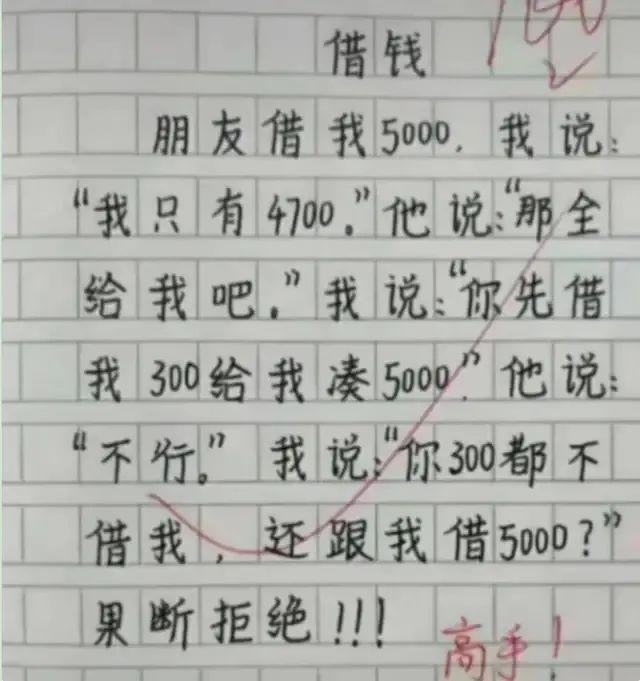 100
借钱
朋友借我5000.我说:
“我只有4700.”他说:“那全
给我吧.”我说:“你先借
我300给我凑5000.”他说:
“不行.”我说:“你300都不
借我,还跟我借5000?”
果断拒绝!!!
高手!